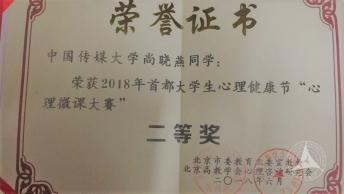 荣誉证书
中国传媒大学尚晓燕同学:
荣获2018年首都大学生心理健康节“心
理微课大赛”
二等奖
北京市委教育工委宣教处
北京高教学会心理咨询研究会
二〇一八年六月